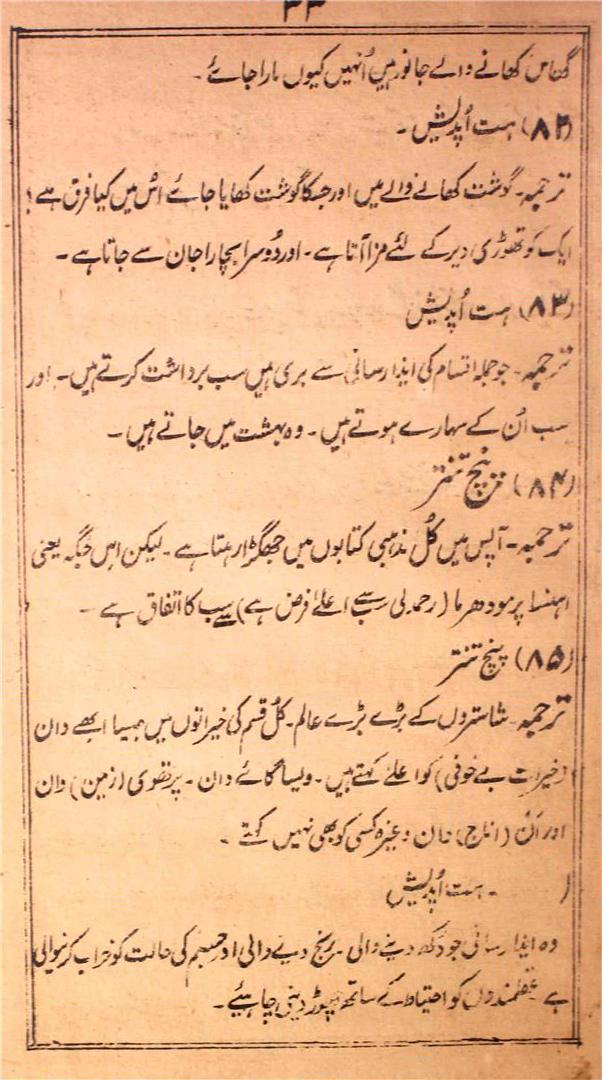 ۳۳
گھاس کھانے والے جانور ہیں اُنہیں کیوں مارا جائے۔
(۸۲) ہت اُپدیش۔
ترجمہ۔ گوشت کھانے والے میں اور جسکا گوشت کھایا جائے اُس میں کیا فرق ہے؟
ایک کو تھوڑی دیر کے لئے مزا آتا ہے۔ اور دُوسرا بچارا جان سے جاتا ہے۔
(۸۳) ہت اُپدیش
ترجمہ۔ جو جملہ اقسام کی ایذا رسانی سے بری ہیں سب برداشت کرتے ہیں۔ اور
سب اُن کے سہارے ہوتے ہیں۔ وہ بہشت میں جاتے ہیں۔
(۸۴) پنچ تنتر
ترجمہ۔ آپس میں کُل مذہبی کتابوں میں جھگڑا رہتا ہے۔ لیکن اِس جگہ یعنی
اہنسا پرمو دھرما (رحمدلی سب سے اعلےٰ فرض ہے) سے سب کا اتفاق ہے۔
(۸۵) پنچ تنتر
ترجمہ۔ شاستروں کے بڑے بڑے عالم۔ کُل قسم کی خیراتوں میں جیسا ابھے دان
(خیرات بے خوفی) کو اعلےٰ کہتے ہیں۔ ویسا گائے دان۔ پرتھوی (زمین) دان
اور اَنّ (اناج) دان وغیرہ کسی کو بھی نہیں کہتے۔
( ۔ ہت اُپدیش
وہ ایذا رسانی جو دُکھ دینے والی۔ رنج دینے والی اور جسم کی حالت کو خراب کرنیوالی
ہے عقلمندوں کو احتیاط کے ساتھ چھوڑ دینی چاہئیے۔